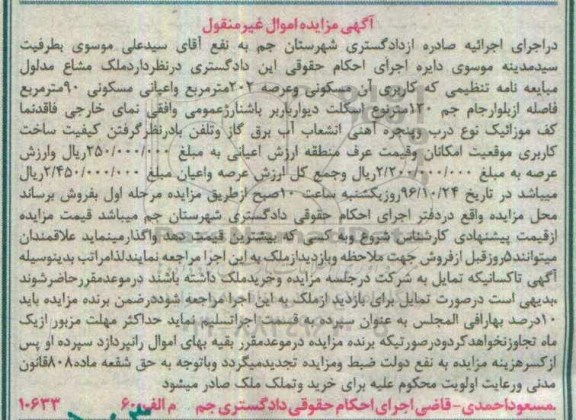 آگهی مزایده اموال غیرمنقول
دراجرای اجرائیه صادره ازدادگستری شهرستان جم به نفع آقای سیدعلی موسوی بطرفیت
سیدمدینه موسوی دایره اجرای احکام حقوقی این دادگستری درنظرداردملک مشاع مدلول
مبایعه نامه تنظیمی که کاربری آن مسکونی وعرصه ۲۰۲مترمربع واعیانی مسکونی ۹۰مترمربع
فاصله ازبلوارجام جم ۱۲۰مترنوع اسکلت دیوارباربر باشناژعمومی وافقی نمای خارجی فاقدنما
کف موزائیک نوع درب وپنجره آهنی انشعاب آب برق گاز وتلفن بادرنظرگرفتن کیفیت ساخت
کاربری موقعیت امکانان وقیمت عرف منطقه ارزش اعیانی به مبلغ ۲۵۰/۰۰۰/۰۰۰ریال وارزش
عرصه به مبلغ ۲/۲۰۰/۰۰۰/۰۰۰ریال وجمع کل ارزش عرصه واعیان مبلغ ۲/۴۵۰/۰۰۰/۰۰۰ریال
میباشد در تاریخ ۹۶/۱۰/۲۴روزیکشنبه ساعت ۱۰صبح ازطریق مزایده مرحله اول بفروش برساند
محل مزایده واقع دردفتر اجرای احکام حقوقی دادگستری شهرستان جم میباشد قیمت مزایده
ازقیمت پیشنهادی کارشناس شروع وبه کسی که بیشترین قیمت دهد واگذارمینماید علاقمندان
میتوانند۵روزقبل ازفروش جهت ملاحظه وبازدیدازملک به این اجرا مراجعه نمایندلذامراتب بدینوسیله
آگهی تاکسانیکه تمایل به شرکت درجلسه مزایده وخریدملک داشته باشند درموعدمقررحاضرشوند
بدیهی است درصورت تمایل برای بازدید ازملک به این اجرا مراجعه شوددرضمن برنده مزایده باید
۱۰درصد بهارافی المجلس به عنوان سپرده به قسمت اجراتسلیم نماید حداکثر مهلت مزبور ازیک
ماه تجاوزنخواهدکردودرصورتیکه برنده مزایده درموعدمقرر بقیه بهای اموال رانپردازد سپرده او پس
ازکسرهزینه مزایده به نفع دولت ضبط ومزایده تجدیدمیگردد وباتوجه به حق شفعه ماده۸۰۸قانون
مدنی ورعایت اولویت محکوم علیه برای خرید وتملک ملک صادر میشود
مسعوداحمدی-قاضی اجرای احکام حقوقی دادگستری جم م الف۶۰ ۱۰۶۳۳